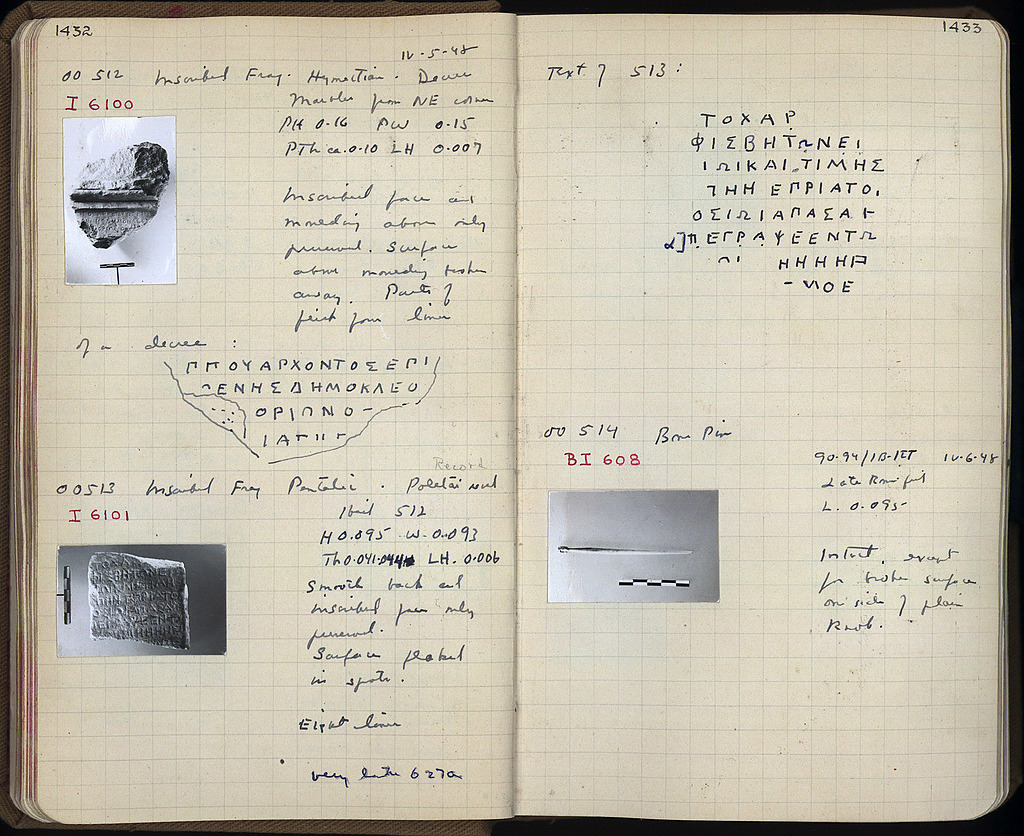 1432
IV-5-48
OO 512 Inscribed Frag. Hymettian. Decree
I 6100
Marbles from NE corner
PH 0.16 PW 0.15
PTh ca. 0.10 LH 0.007
Inscribed face and
moulding above only
preserved. Surface
above moulding broken
away. Parts of
first four lines
of a decree :
ΠΠΟΥΑΡΧΟΝΤΟΣΕΠΙ
ΕΝΗΣΔΗΜΟΚΛΕΟ
ΟΡΙΩΝΟ
Record
OO 513 Inscribed Frag Pentelic. Poletai
Ibid 512
H 0.095 W. 0.093
I 6101
Th 0.041 LH. 0.006
Smooth back and
inscribed face only
preserved.
Surface flaked
in spots.
Eight lines
very late
1433
Text of 513 :
ΤΟΧΑΡ
ΦΙΣΒΗΤΩΝΕΙ
ΙΩΙΚΑΙ ΤΙΜΗΣ
ΗΗ ΕΠΡΙΑΤΟ
ΟΣΙΩΙΑΠΑΣΑΙ
α]ΠΕΓΡΑΨΕΕΝΤΩ
ΗΗΗΗ
ΟΕ
OO 514 Bone Pin
BI 608
90-94/ IV-6-48
Late Roman fill
L. 0.095
Intact, except
for broken surface
on side of plain
knob.